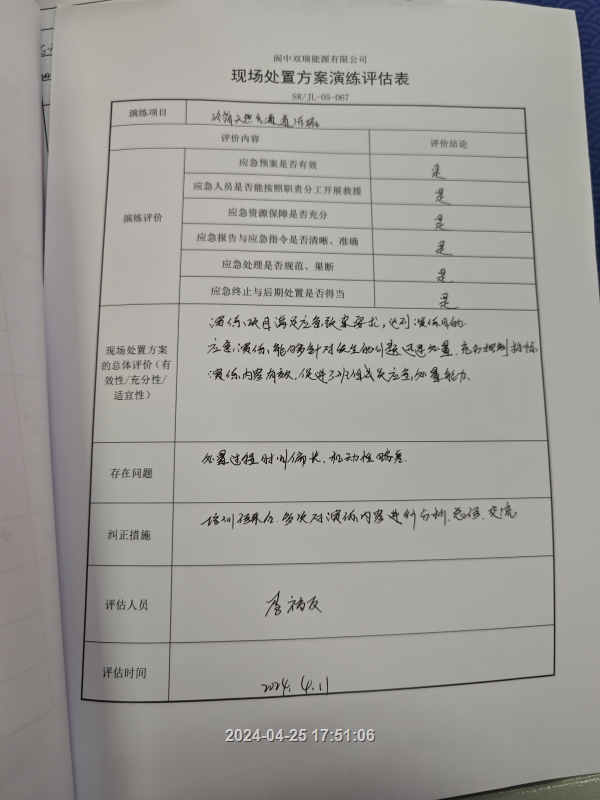 阆中双瑞能源有限公司
现场处置方案演练评估表
SR/JL-05-067
演练项目
评价内容 评价结论
演练评价
应急预案是否有效 是
应急人员是否能按照职责分工开展救援 是
应急资源保障是否充分 是
应急报告与应急指令是否清晰、准确 是
应急处理是否规范、果断 是
应急终止与后期处置是否得当 是
现场处置方案的总体评价(有效性/充分性/适宜性)
演练项目满足应急预案要求,达到演练目的
应急演练,能够针对发生的 迅速处置,充分
演练内容有效,促进了班组成员应急处置能力.
存在问题 处置过程时间偏长,机动性略差.
纠正措施 培训 多次对演练内容进行分析、总结、交流
评估人员
评估时间 2024.4.11
2024-04-25 17:51:06